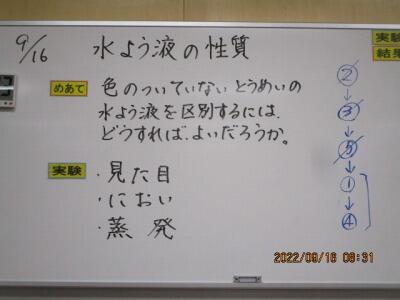 9/16 水よう液の性質
めあて 色のついていないとうめいの
水よう液を区別するには、
どうすれば、よいだろうか。
実験 ・見た目
・におい
・蒸発
実験
結果
②
↓
③
↓
⑤
↓
①
↓
④
2022/09/16 08:31